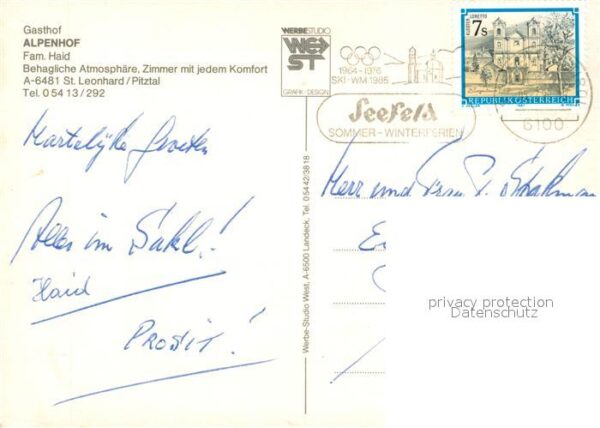 Gasthof
ALPENHOF
Fam. Haid
Behagliche Atmosphäre, Zimmer mit jedem Komfort
A-6481 St. Leonhard/Pitztal
Tel. 0 54 13/292
WERBESTUDIO
WEST
GRAFIK-DESIGN
1964-1976
SKI-WM 1985
Seefeld
SOMMER-WINTERFERIEN
7s
REPUBLIK ÖSTERREICH
6100
Hartelijke Groeten
Alles im
Haid
PROSIT!
Herr und Frau
Werbe-Studio West, A-6500 Landeck, Tel. 05442/3818
privacy protection
Datenschutz